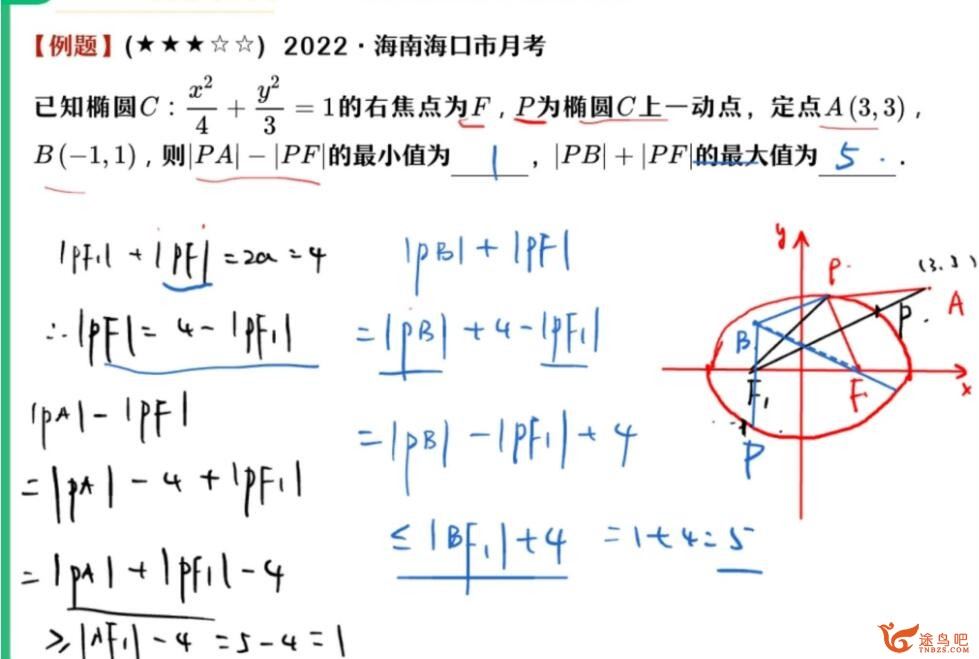 【例题】(★★★☆☆) 2022·海南海口市月考
已知椭圆C：x²/4 + y²/3 = 1的右焦点为F，P为椭圆C上一动点，定点A(3,3)，
B(-1,1)，则|PA|-|PF|的最小值为 1 ，|PB|+|PF|的最大值为 5 .
|PF₁| + |PF| = 2a = 4
∴|PF| = 4 - |PF₁|
|PA| - |PF|
= |PA| - 4 + |PF₁|
= |PA| + |PF₁| - 4
≥ |AF₁| - 4 = 5 - 4 = 1
|PB| + |PF|
= |PB| + 4 - |PF₁|
= |PB| - |PF₁| + 4
≤ |BF₁| + 4 = 1 + 4 = 5
y
P
(3,3)
A
B
P
F₁
F
x
P
途鸟吧
TNBZS.COM